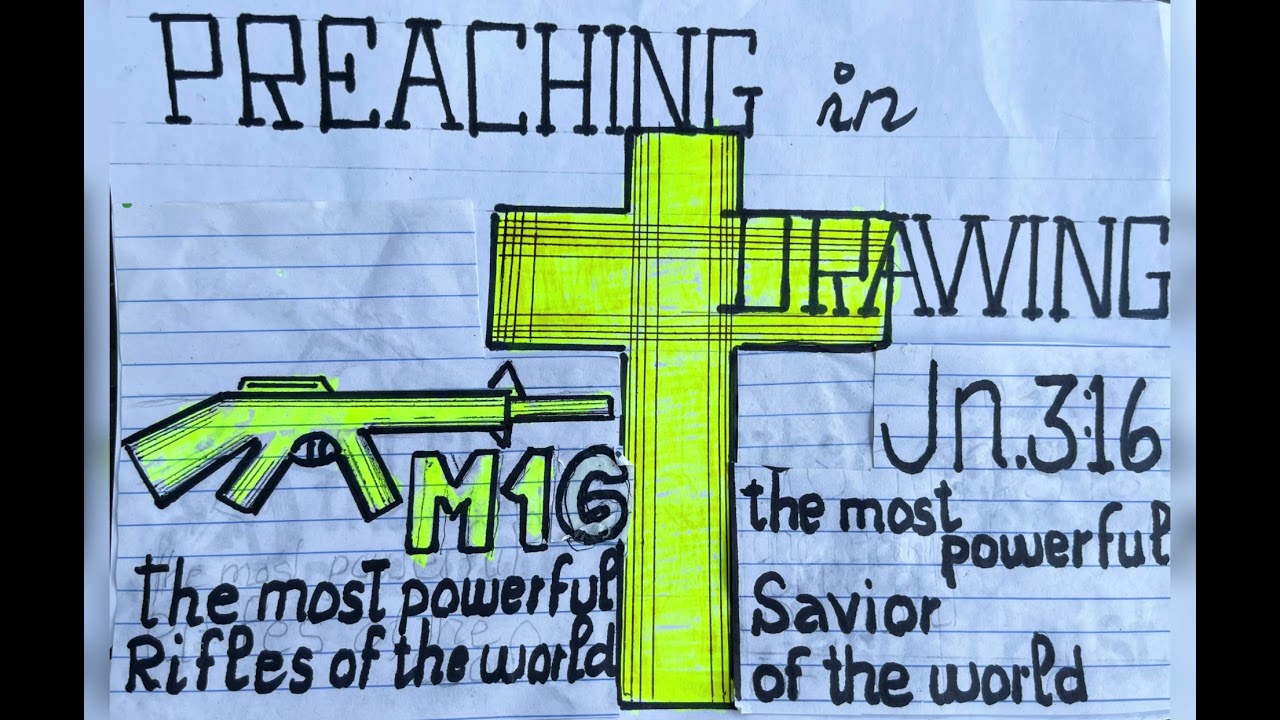 PREACHING in
DRAWING
M16
the most powerful
Rifles of the world
Jn.3:16
the most
powerful
Savior
of the world